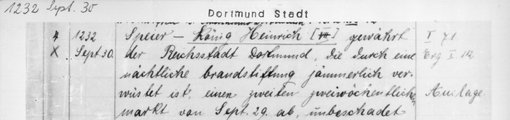 1232 Sept. 30
Dortmund Stadt
4 1232 Speier – König Heinrich [VII] gewährt I 71
X Sept 30. der Reichsstadt Dortmund, die durch eine Erg I 14
nächtliche brandstiftung jämmerlich ver-
wüstet ist, einen zweiten zweiwöchentlich Anlage
markt von Sept. 29 ab, unbeschadet